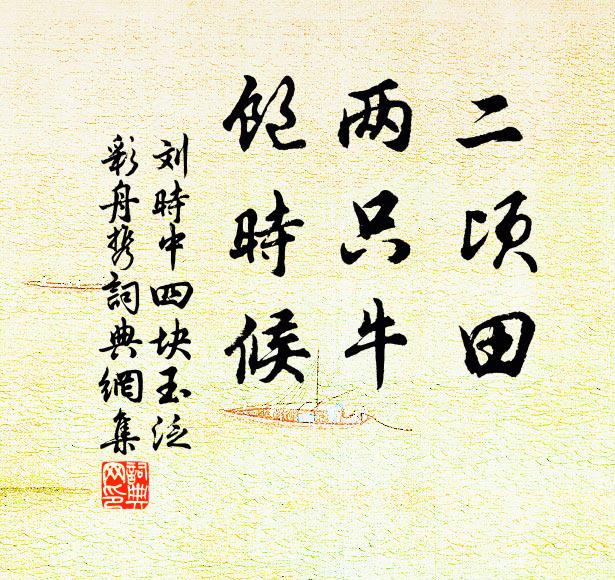 二顷田
两只牛
饱時候
刘時中四块玉泛
彩舟携詞典網集
詞典网印